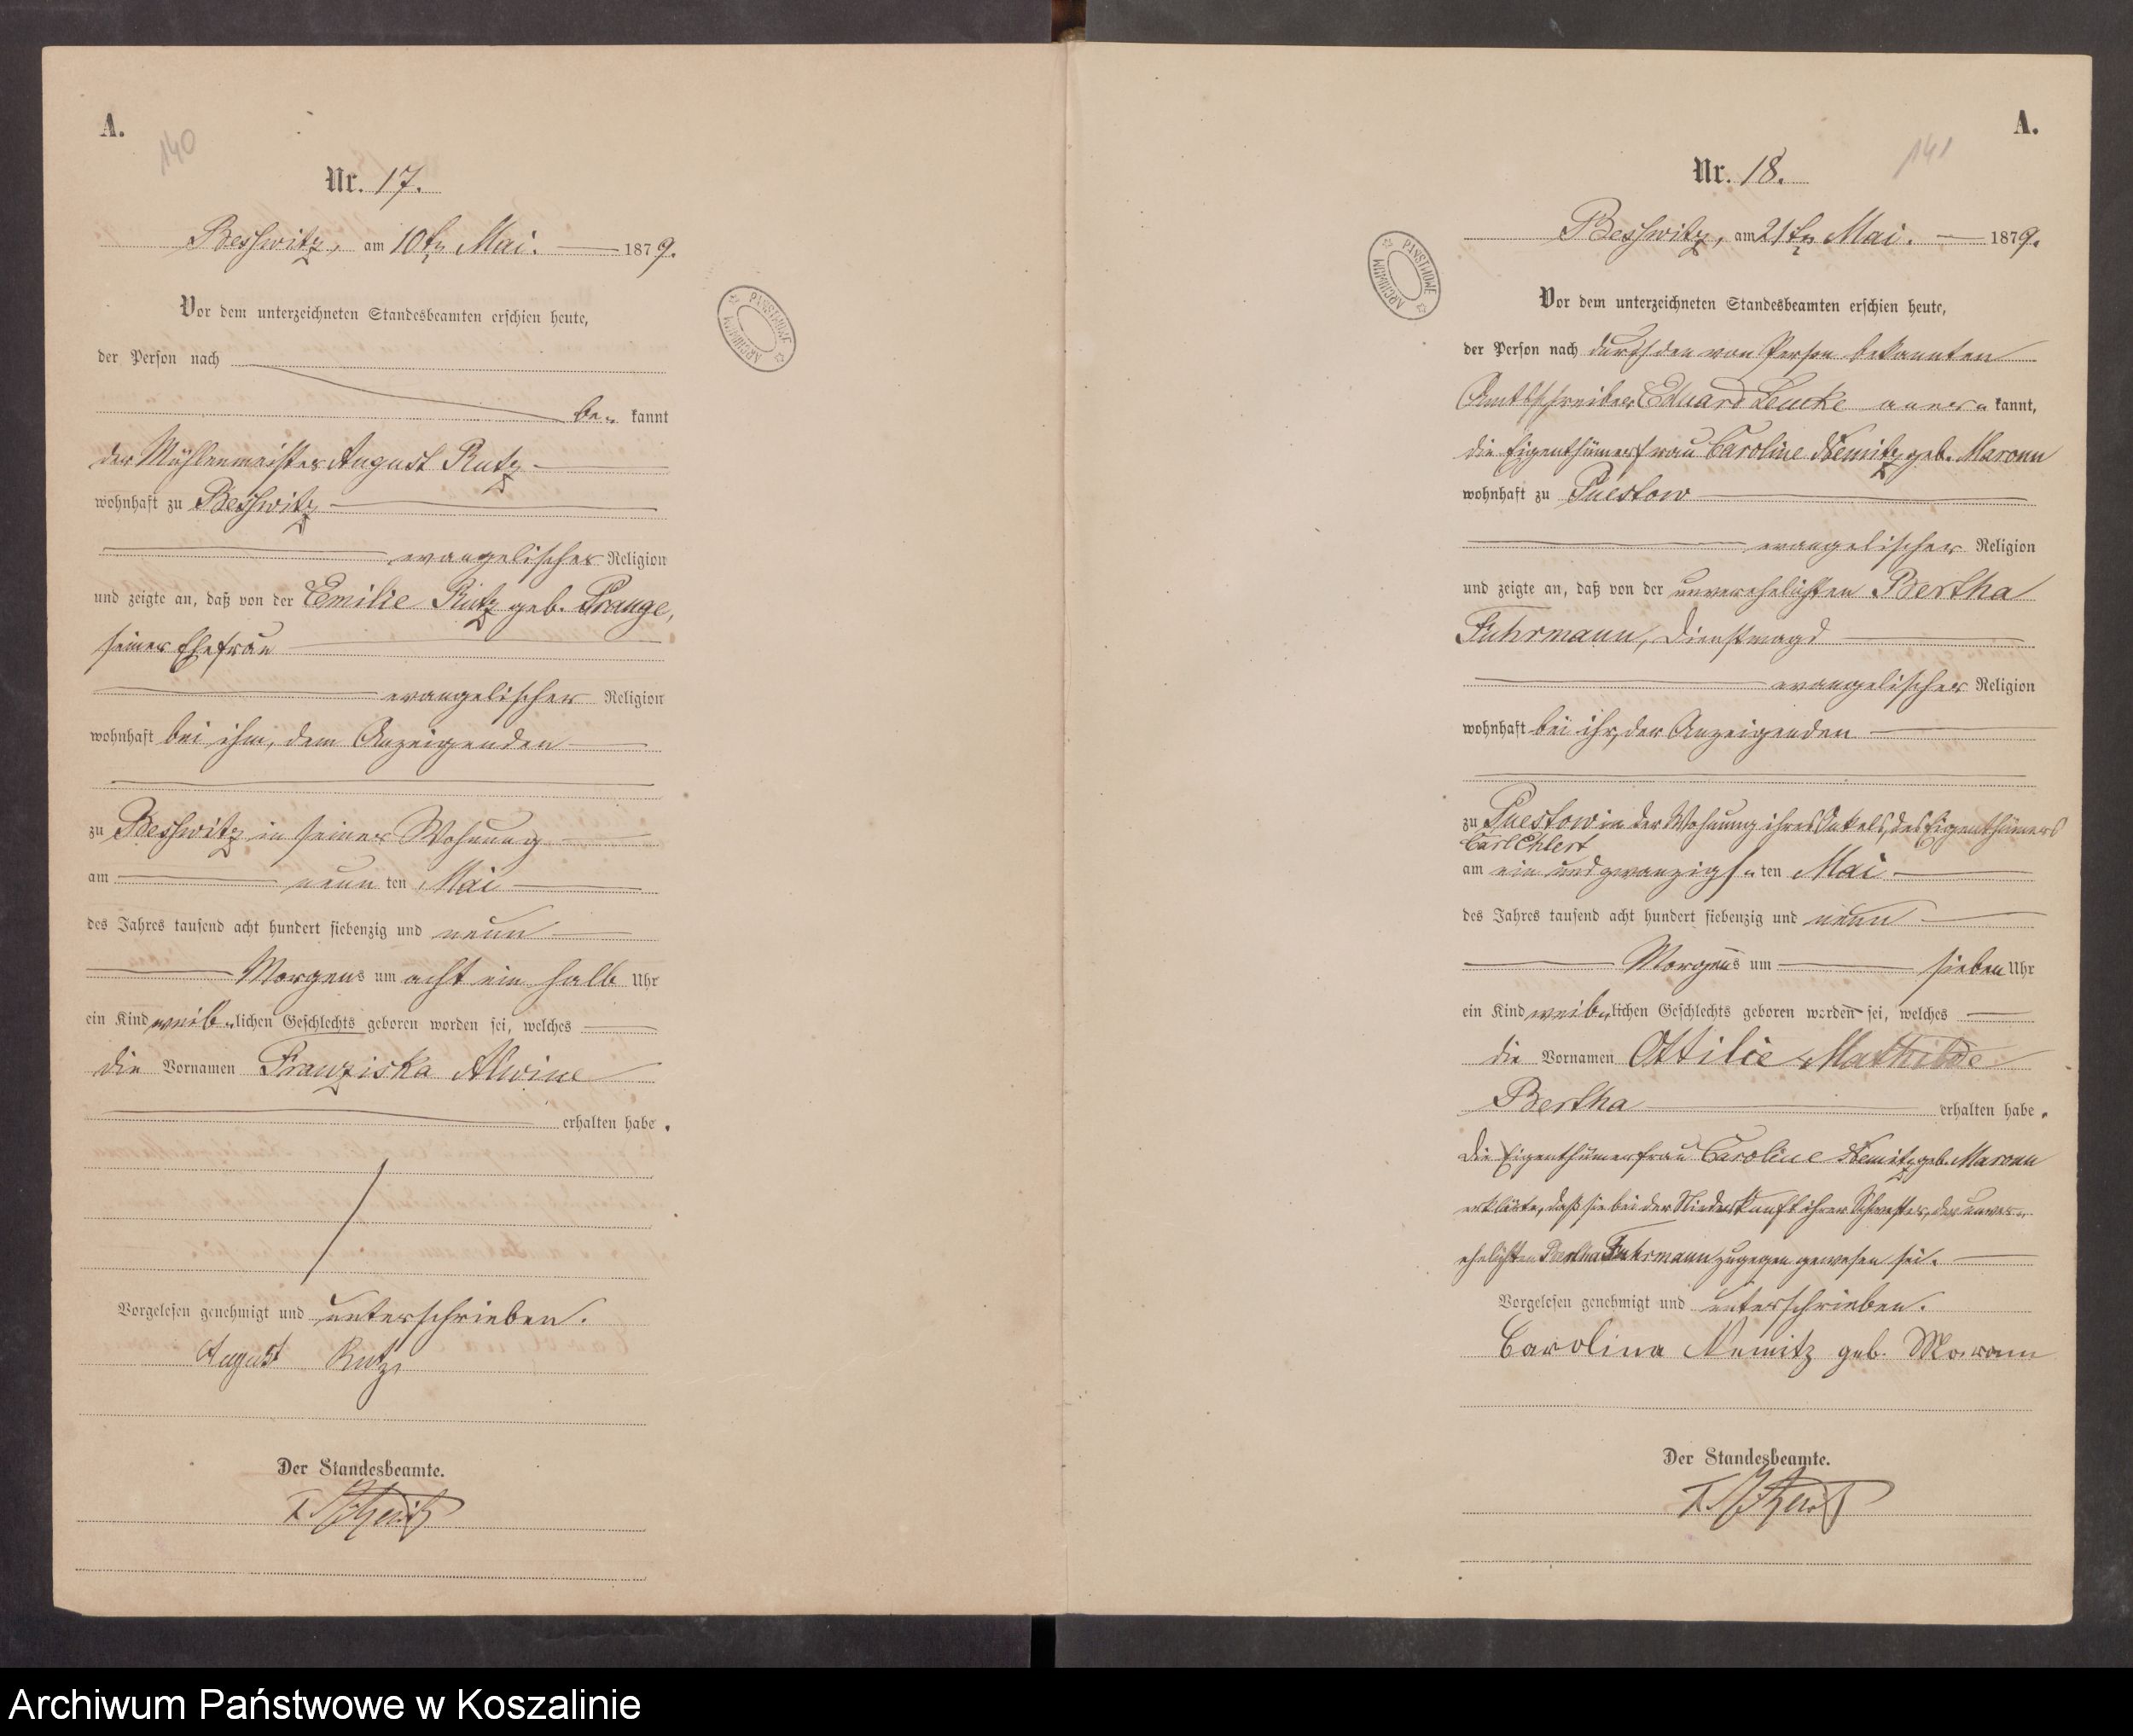 A.
140
Nr. 17.
Besswitz, am 10ten Mai. 1879.
Vor dem unterzeichneten Standesbeamten erschien heute,
der Person nach
be- kannt
der Mühlenmeister August Rutz
wohnhaft zu Besswitz
evangelischer Religion
und zeigte an, daß von der Emilie Rutz geb. Prange,
seiner Ehefrau
evangelischer Religion
wohnhaft bei ihm, dem Anzeigenden
zu Besswitz in seiner Wohnung
am neun ten Mai
des Jahres tausend acht hundert siebenzig und neun
Morgens um acht ein halb Uhr
ein Kind weib-lichen Geschlechts geboren worden sei, welches
die Vornamen Franziska Alwine
erhalten habe.
Vorgelesen genehmigt und unterschrieben.
August Rutz
Der Standesbeamte.
ARCHIWUM PAŃSTWOWE
A.
141
Nr. 18.
Besswitz, am 21ten Mai. 1879.
Vor dem unterzeichneten Standesbeamten erschien heute,
der Person nach durch den von Person bekannten
Amtsschreiber Eduard Lemke aner- kannt,
die Eigenthümerfrau Caroline Nemitz geb. Maronn
wohnhaft zu Puestow
evangelischer Religion
und zeigte an, daß von der unverehelichten Bertha
Fuhrmann, Dienstmagd
evangelischer Religion
wohnhaft bei ihr, der Anzeigenden
zu Puestow in der Wohnung ihres Onkels, des Eigenthümers
Carl Ehlert
am ein und zwanzigs-ten Mai
des Jahres tausend acht hundert siebenzig und neun
Morgens um sieben Uhr
ein Kind weib-lichen Geschlechts geboren worden sei, welches
die Vornamen Ottilie Mathilde
Bertha erhalten habe.
Die Eigenthümerfrau Caroline Nemitz geb. Maronn
erklärte, daß sie bei der Niederkunft ihrer Schwester, der unver-
ehelichten Bertha Fuhrmann zugegen gewesen sei.
Vorgelesen genehmigt und unterschrieben.
Carolina Nemitz geb. Maronn
Der Standesbeamte.
ARCHIWUM PAŃSTWOWE
Archiwum Państwowe w Koszalinie